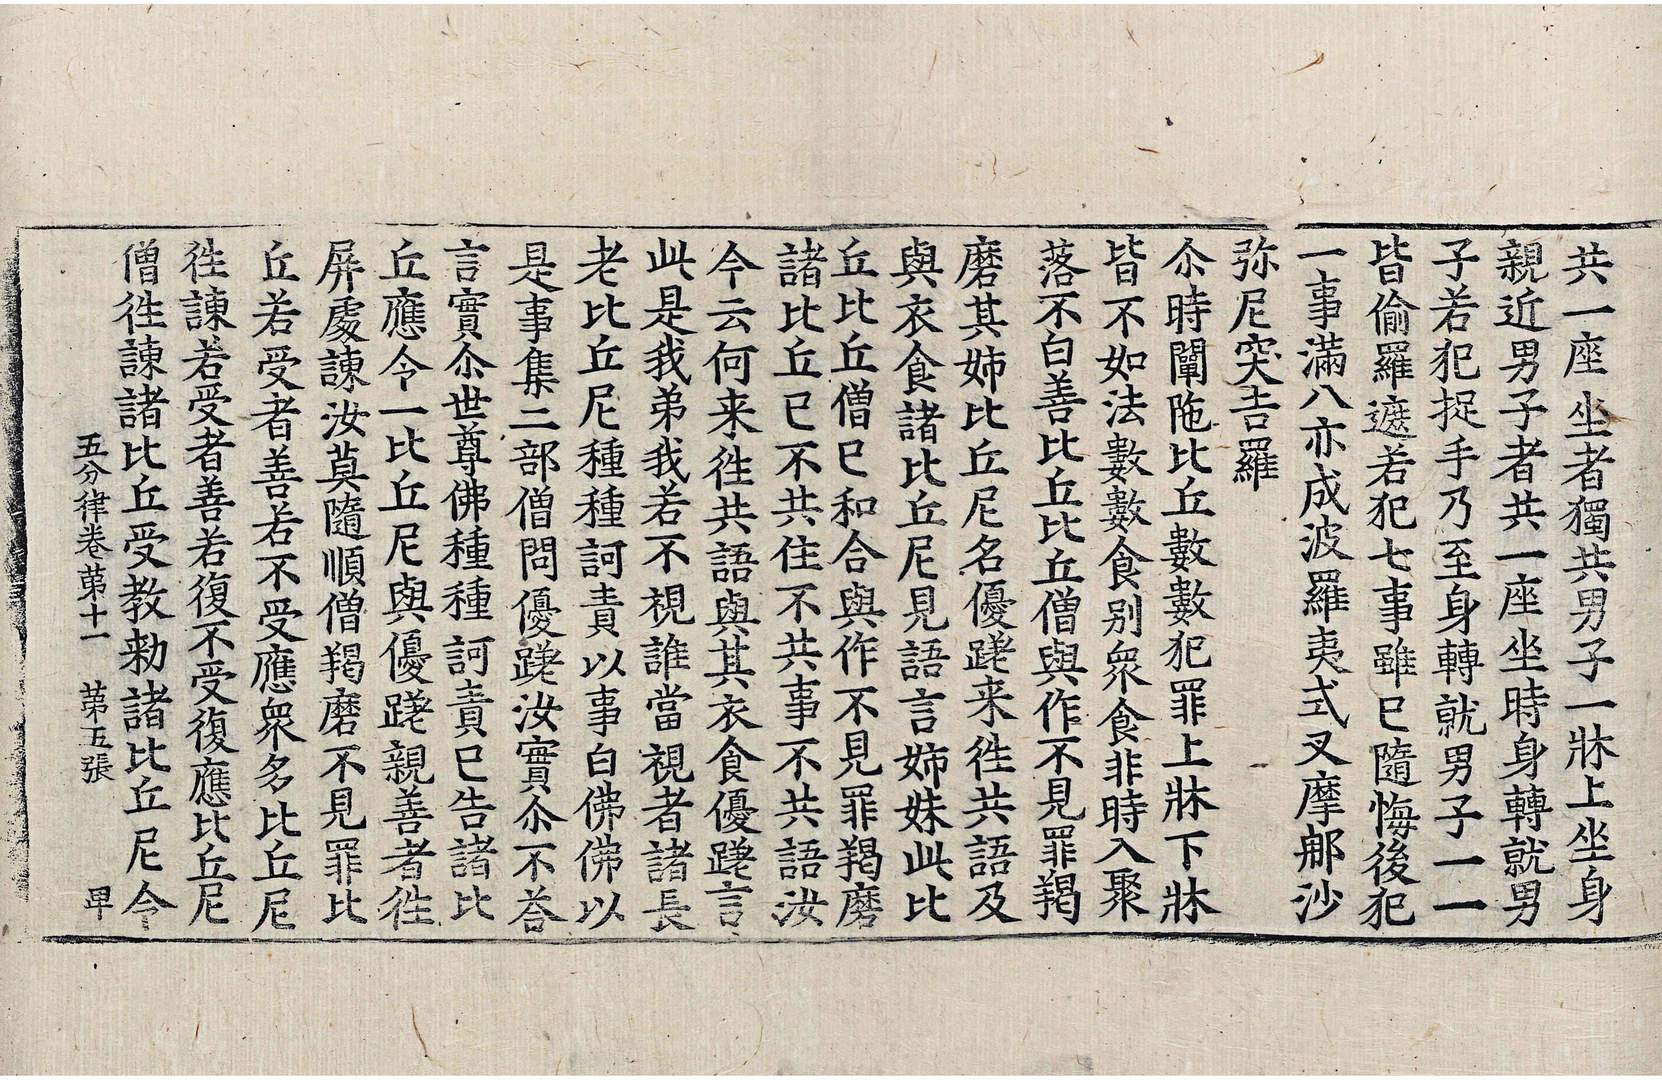 共一座坐者獨共男子一牀上坐身
親近男子者共一座坐時身轉就男
子若犯捉手乃至身轉就男子一一
皆偷羅遮若犯七事雖已隨悔後犯
一事滿八亦成波羅夷式叉摩那沙
弥尼突吉羅
尒時闡陁比丘數數犯罪上牀下牀
皆不如法數數食別衆食非時入聚
落不白善比丘比丘僧與作不見罪羯
磨其姉比丘尼名優蹉来徃共語及
與衣食諸比丘尼見語言姉妹此比
丘比丘僧已和合與作不見罪羯磨
諸比丘已不共住不共事不共語汝
今云何来徃共語與其衣食優蹉言
此是我弟我若不視誰當視者諸長
老比丘尼種種訶責以事白佛佛以
是事集二部僧問優蹉汝實尒不荅
言實尒世尊佛種種訶責已告諸比
丘應令一比丘尼與優蹉親善者徃
屏處諫汝莫隨順僧羯磨不見罪比
丘若受者善若不受應衆多比丘尼
徃諫若受者善若復不受復應比丘尼
僧徃諫諸比丘受教勑諸比丘尼令
五分律卷苐十一　苐五張　卑